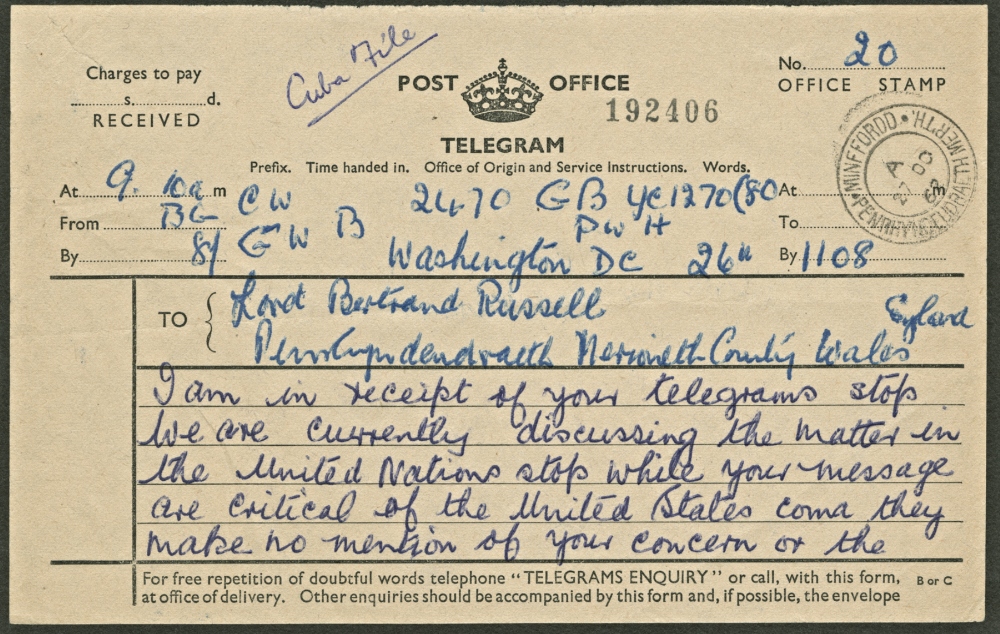 Cuba File
Charges to pay
s. d.
RECEIVED
POST OFFICE
No. 20
OFFICE STAMP
192406
TELEGRAM
Prefix. Time handed in. Office of Origin and Service Instructions. Words.
At 9. 10a m CW 2470 GB YC1270(80 At m
From BG GW B PWH To
By 81 Washington DC 26" By 1108
MINFFORDD · PENRHYNDEUDRAETH MER'TH.
A
TO { Lord Bertrand Russell England
Merioneth County Wales
I am in receipt of your telegrams stop
We are currently discussing the matter in
the United Nations stop while your message
are critical of the United States coma they
make no mention of your concern or the
For free repetition of doubtful words telephone “TELEGRAMS ENQUIRY” or call, with this form, B or C
at office of delivery. Other enquiries should be accompanied by this form and, if possible, the envelope